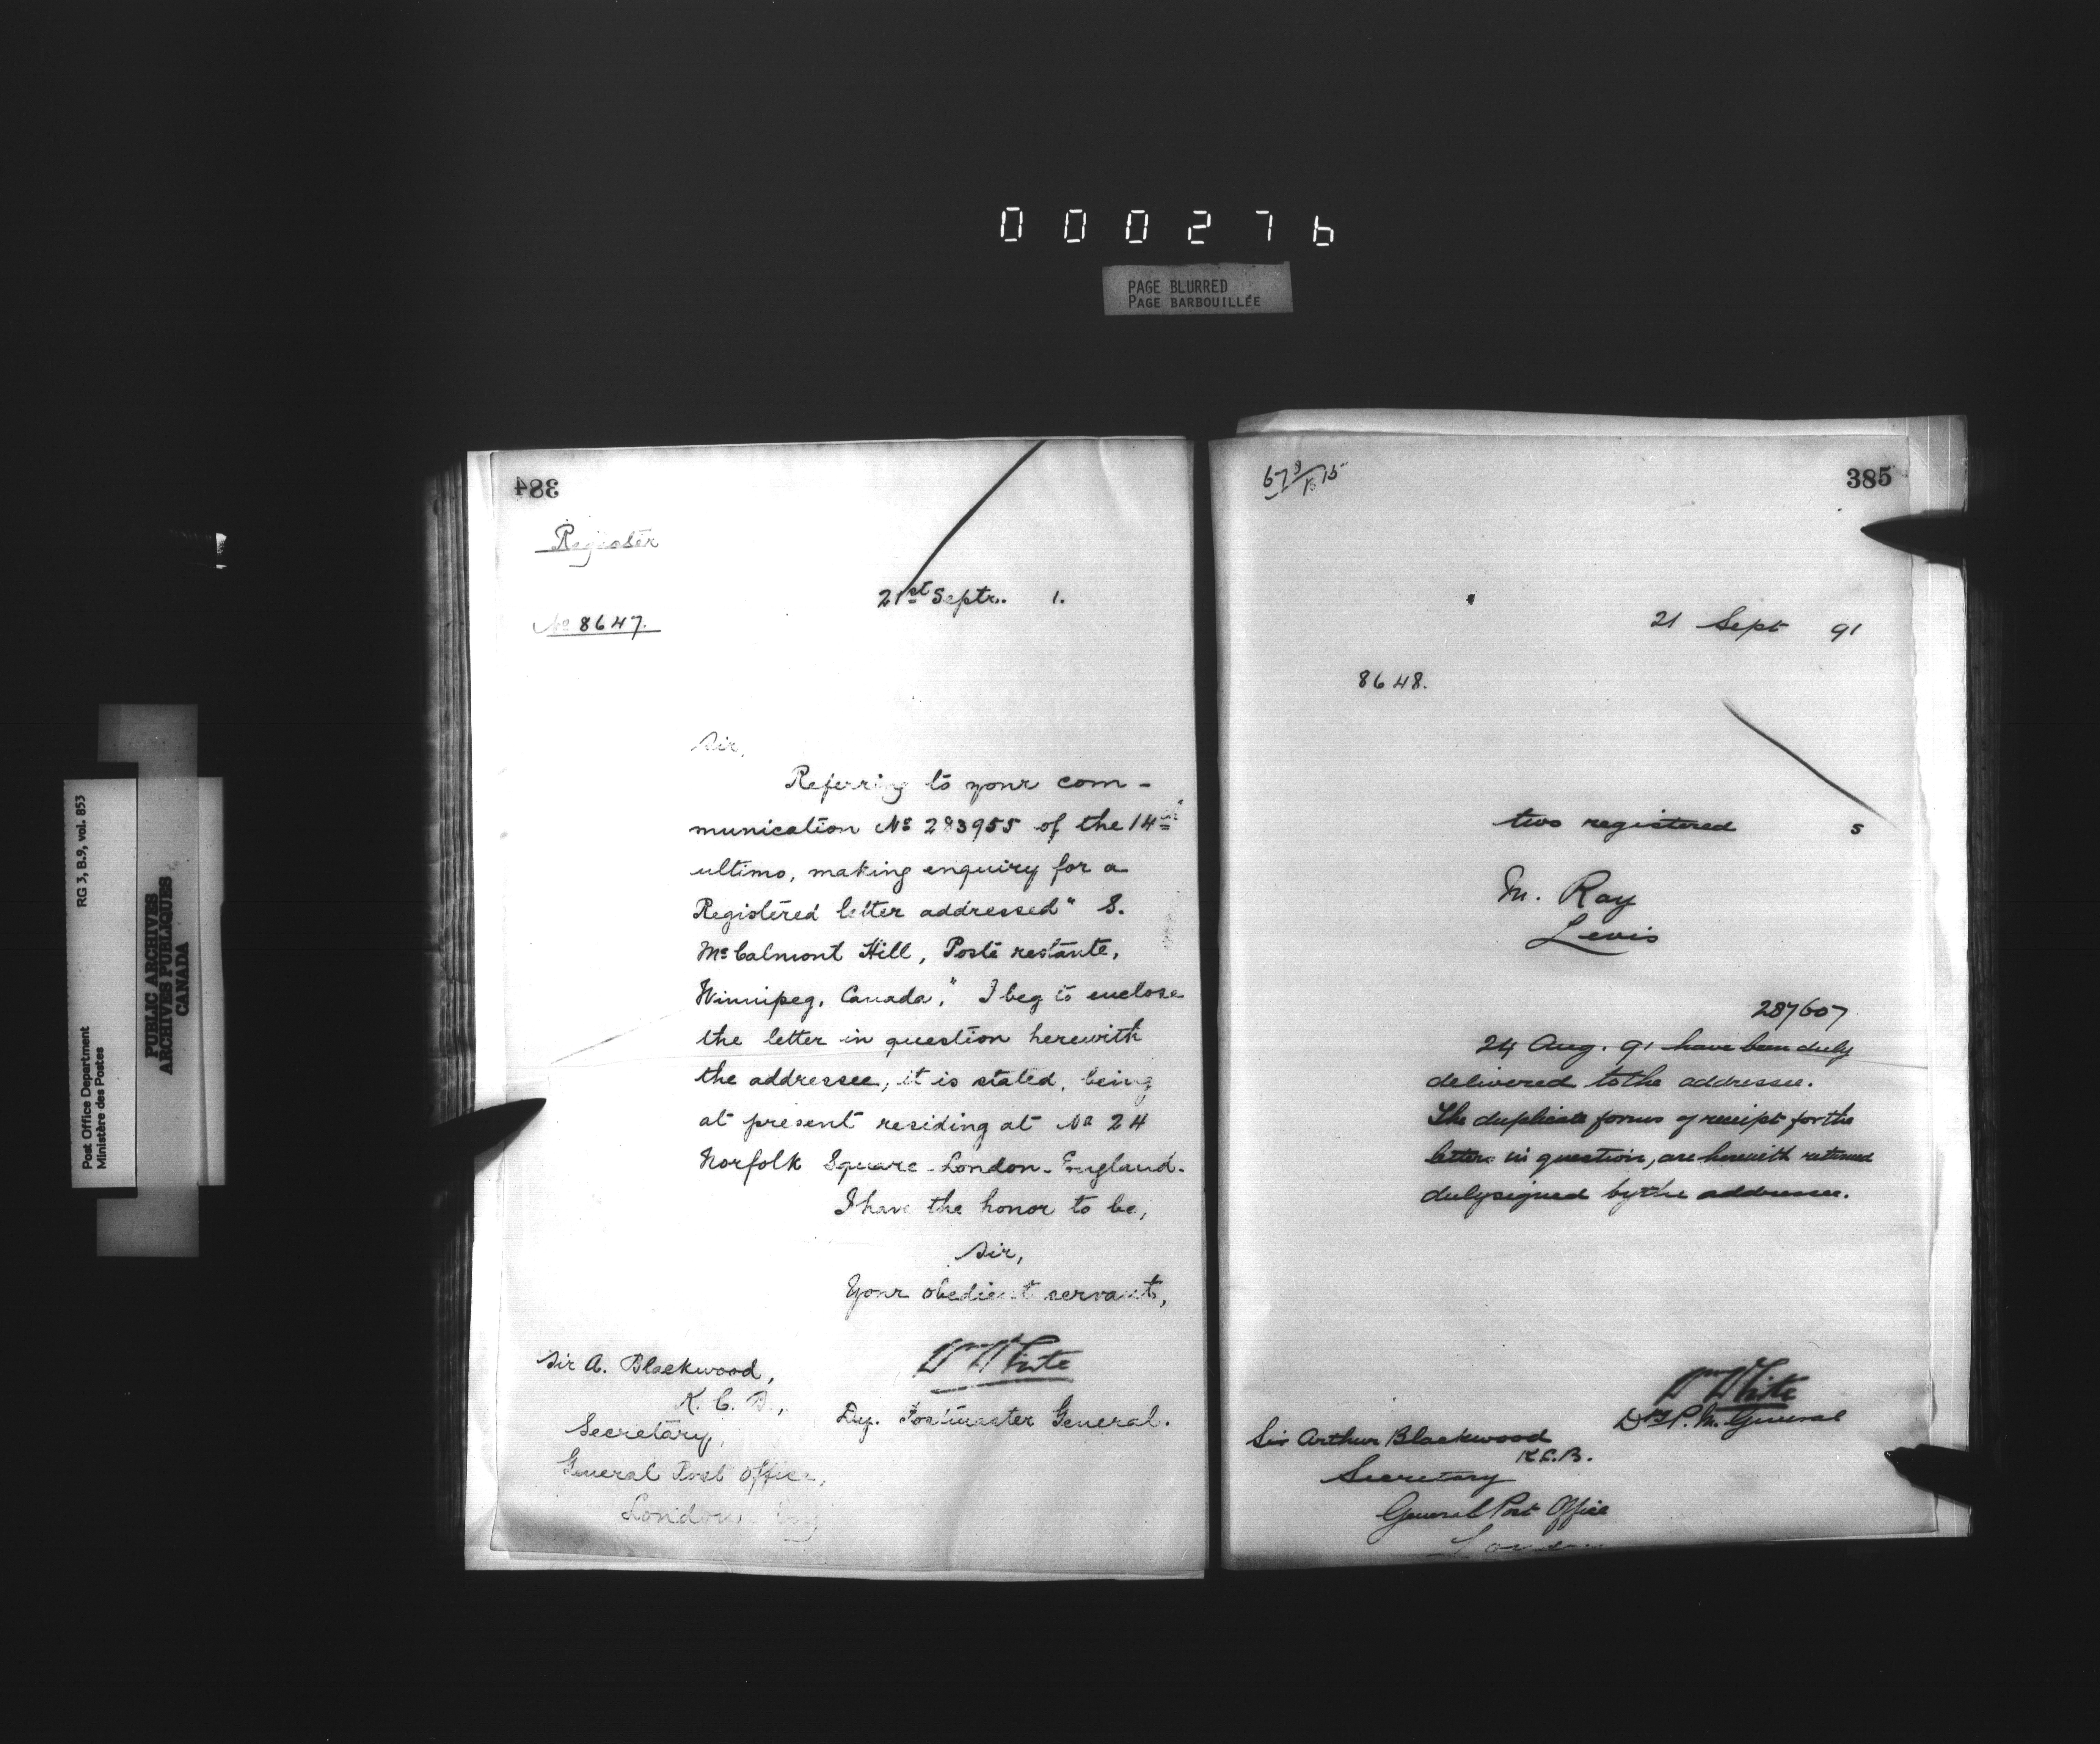 000276
PAGE BLURRED
PAGE BARBOUILLÉE
RG 3, B.9, vol. 853
Post Office Department
Ministère des Postes
PUBLIC ARCHIVES
ARCHIVES PUBLIQUES
CANADA
384
Register
21st Septr. 1.
No 8647.
Sir,
Referring to your com-
munication No 283955 of the 14th
ultimo, making enquiry for a
Registered letter addressed " S.
McCalmont Hill, Poste restante,
Winnipeg, Canada," I beg to enclose
the letter in question herewith
the addressee, it is stated, being
at present residing at No 24
Norfolk Square London England.
I have the honor to be,
Sir,
Your obedient servant,
Wm White
Dy. Postmaster General.
Sir A. Blackwood,
K. C. B.,
Secretary,
General Post Office,
London Eng
385
21 Sept 91
8648.
two registered s
M. Ray
Levis
287607
24 Aug. 91 have been duly
delivered to the addressee.
The duplicate forms of receipt for the
letters in question, are herewith returned
duly signed by the addressee.
Wm White
Dy P. M. General
Sir Arthur Blackwood
K.C.B.
Secretary
General Post Office
London